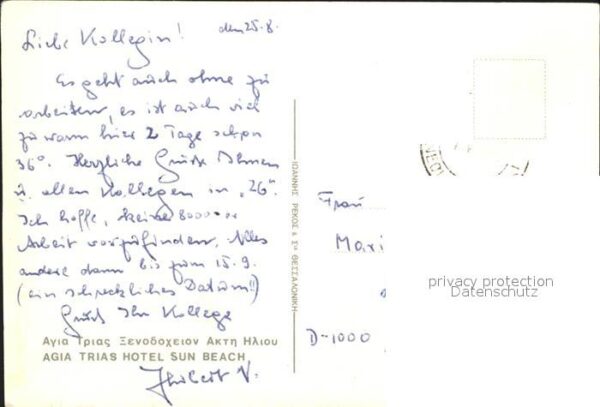 den 25.8.
Liebe Kollegin!
Es geht auch ohne zu
arbeiten, es ist auch viel
zu warm hier 2 Tage schon
36°. Herzliche Grüße Ihnen
u. allen Kollegen in „26".
Ich hoffe, keine
Arbeit vorzufinden. Alles
andere dann bis zum 15.9.
(ein schreckliches Datum!!)
Gruß Ihr Kollege
V.
Αγια Τριας Ξενοδοχειον Ακτη Ηλιου
AGIA TRIAS HOTEL SUN BEACH
ΙΩΑΝΝΗΣ ΡΕΚΟΣ & Σια ΘΕΣΣΑΛΟΝΙΚΗ
Frau
Mari
D-1000
privacy protection
Datenschutz